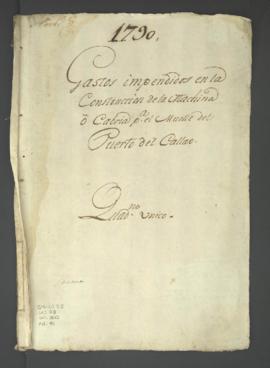 1790.
Gastos impendidos en la
Construccion de la Machina
ô Cabria p.a el Muelle del
Puerto del Callao.
Quad.no Unico.